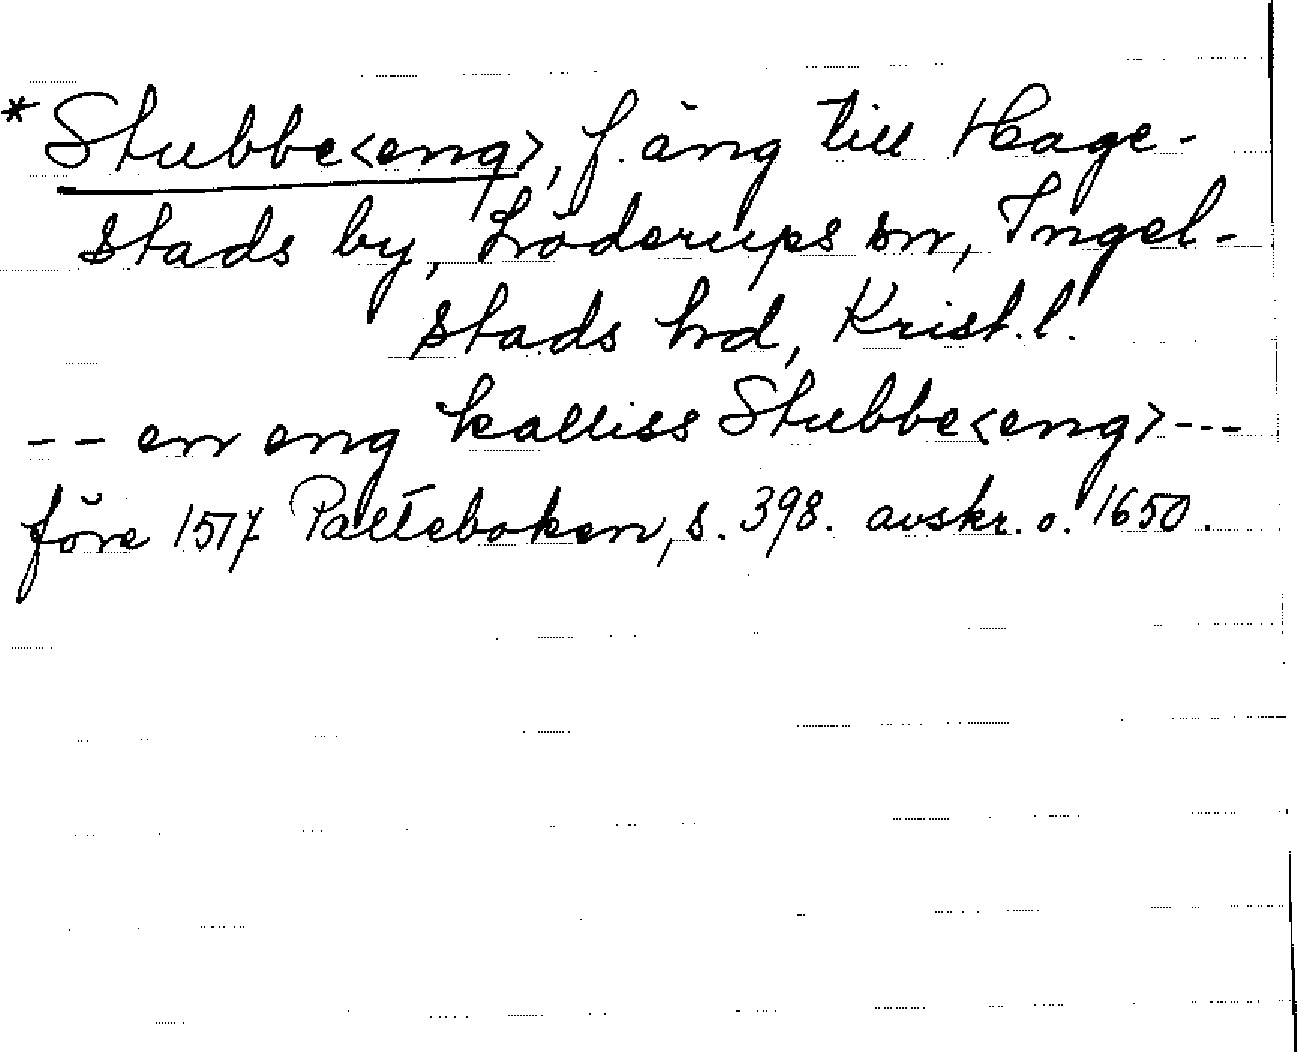 *Stubbe<eng>, f. äng till Hage-
stads by, Löderups sn, Ingel-
stads hd, Krist. l.
-- en eng kalliss Stubbe<eng>---
före 1517 Palteboken, s. 398. avskr. o. 1650.